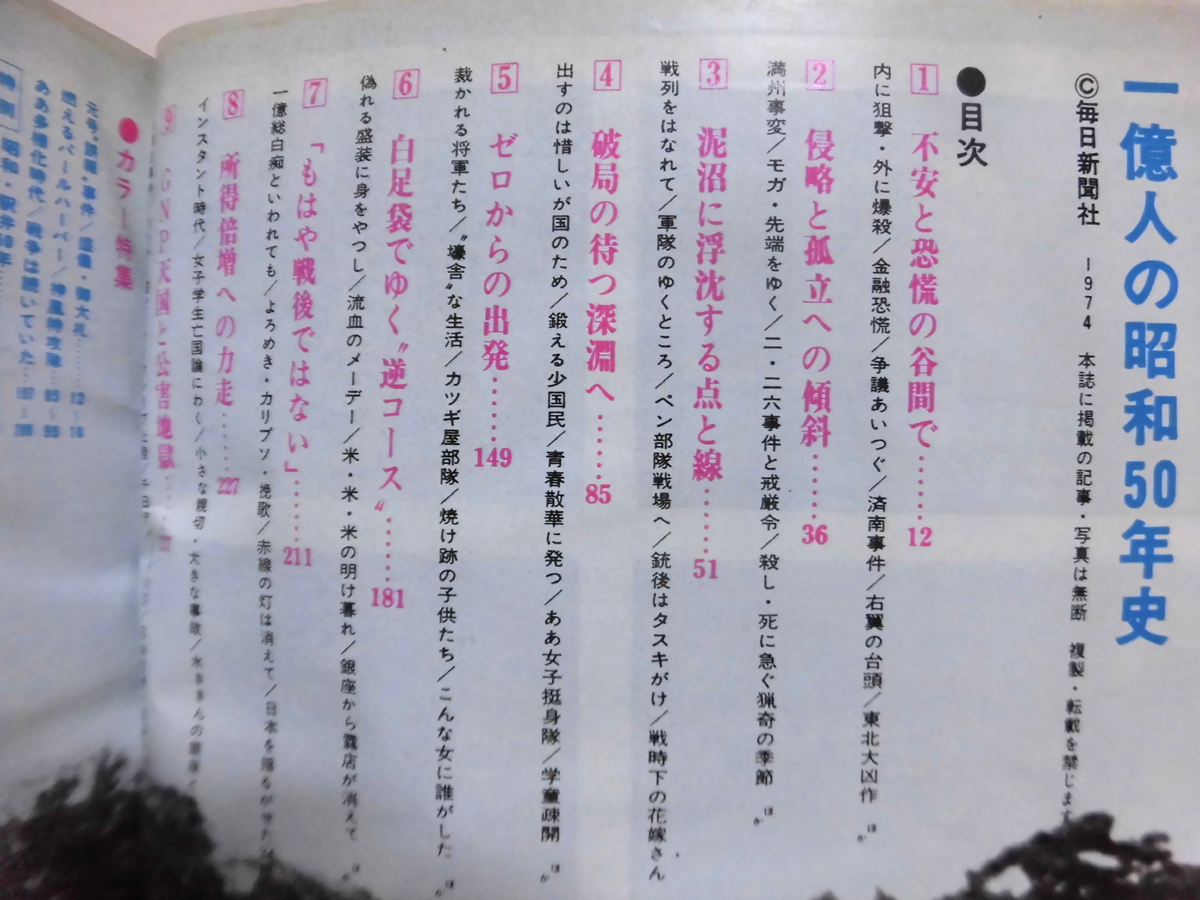 一億人の昭和50年史
©毎日新聞社 1974 本誌に掲載の記事・写真は無断 複製・転載を禁じます
●目次
1 不安と恐慌の谷間で……12
内に狙撃・外に爆殺/金融恐慌/争議あいつぐ/済南事件/右翼の台頭/東北大凶作 ほか
2 侵略と孤立への傾斜……36
満州事変/モガ・先端をゆく/二・二六事件と戒厳令/殺し・死に急ぐ猟奇の季節 ほか
3 泥沼に浮沈する点と線……51
戦列をはなれて/軍隊のゆくところ/ペン部隊戦場へ/銃後はタスキがけ/戦時下の花嫁さん
4 破局の待つ深淵へ……85
出すのは惜しいが国のため/鍛える少国民/青春散華に発つ/ああ女子挺身隊/学童疎開 ほか
5 ゼロからの出発……149
裁かれる将軍たち/〝壕舎〟な生活/カツギ屋部隊/焼け跡の子供たち/こんな女に誰がした ほか
6 白足袋でゆく〝逆コース〟……181
偽れる盛装に身をやつし/流血のメーデー/米・米・米の明け暮れ/銀座から露店が消えて ほか
7 「もはや戦後ではない」……211
一億総白痴といわれても/よろめき・カリプソ・挽歌/赤線の灯は消えて/日本を揺るがせた
8 所得倍増への力走……227
インスタント時代/女子学生亡国論にわく/小さな親切・大きな事故/水
9 GNP天国と公害地獄
●カラー特集
元号・誤報・事件/盛儀・御大礼……12〜16
燃えるパールハーバー/神風特攻隊……
ああ多様化時代/戦争は続いていた…197〜200
特別 昭和・